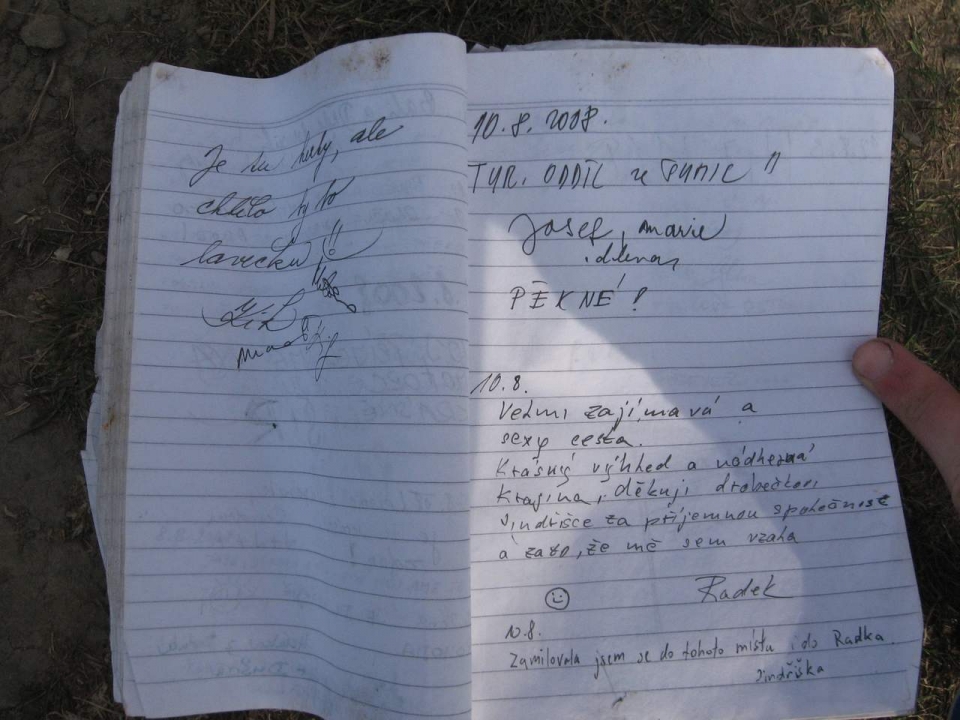 Je tu hezky, ale
chtělo by to
lavečku!!
10.8.2008.
TUR. ODDÍL ze
Josef, Marie
PĚKNÉ!
10.8.
Velmi zajímavá a
sexy cesta.
Krásný výhled a nádherná
Krajina, děkuji drobečkovi
Jindřišce za příjemnou společnost
a zato, že mě sem vzala
Radek
10.8.
Zamilovala jsem se do tohoto místa i do Radka.
Jindřiška